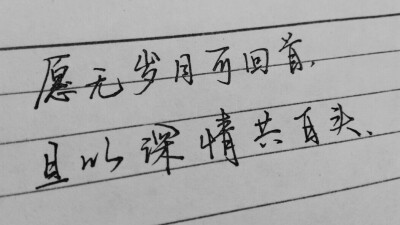 愿无岁月可回首.
且以深情共白头、